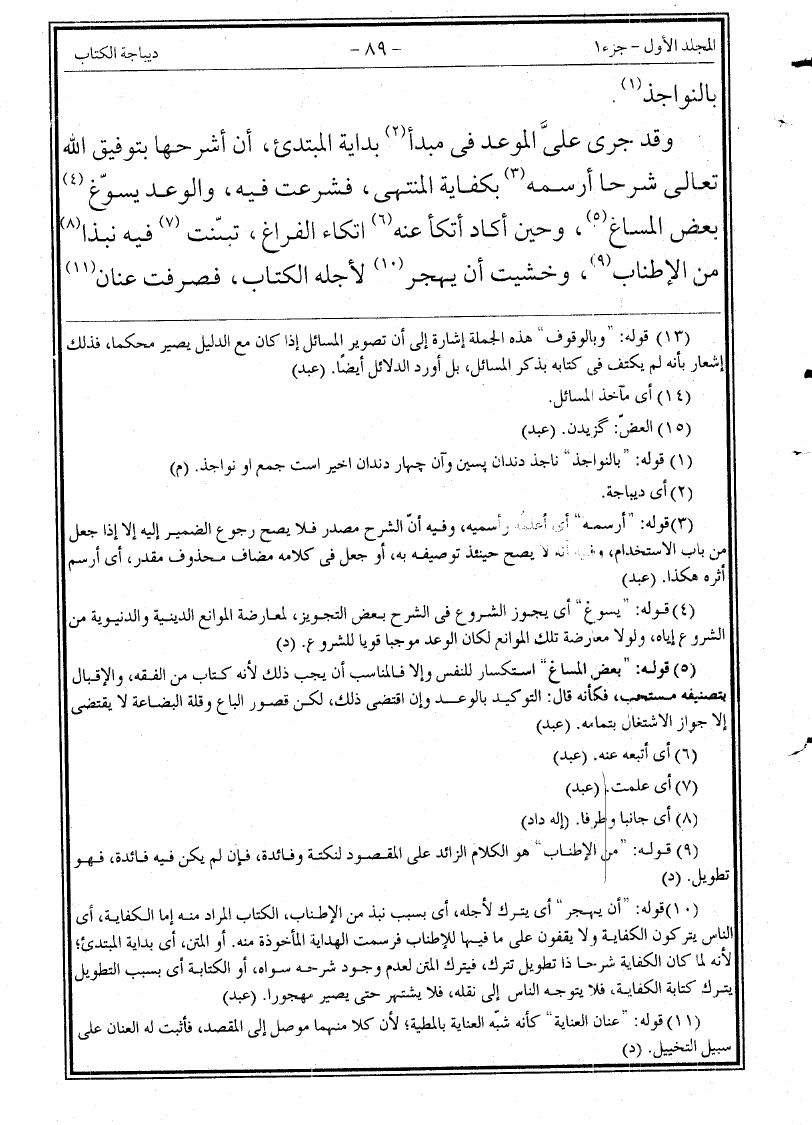 المجلد الأول - جزء ١ - ٨٩ - ديباجة الكتاب
بالنواجذ(١).
وقد جرى علىَّ الموعد فى مبدأ(٢) بداية المبتدئ، أن أشرحها بتوفيق الله
تعالى شرحا أرسمه(٣) بكفاية المنتهى، فشرعت فيه، والوعد يسوّغ(٤)
بعض المساغ(٥)، وحين أكاد أتكأ عنه(٦) اتكاء الفراغ، تبيّنت(٧) فيه نبذا(٨)
من الإطناب(٩)، وخشيت أن يهجر(١٠) لأجله الكتاب، فصرفت عنان(١١)
(١٣) قوله: "وبالوقوف" هذه الجملة إشارة إلى أن تصوير المسائل إذا كان مع الدليل يصير محكما، فذلك
إشعار بأنه لم يكتف فى كتابه بذكر المسائل، بل أورد الدلائل أيضًا. (عبد)
(١٤) أى مآخذ المسائل.
(١٥) العضّ: گزيدن. (عبد)
(١) قوله: "بالنواجذ" ناجذ دندان پسين وآن چهار دندان اخير است جمع او نواجذ. (م)
(٢) أى ديباجة.
(٣) قوله: "أرسمه" أى أعلمه وأسميه، وفيه أنّ الشرح مصدر فلا يصح رجوع الضمير إليه إلا إذا جعل
من باب الاستخدام، وفيه أنه لا يصح حينئذ توصيفه به، أو جعل فى كلامه مضاف محذوف مقدر، أى أرسم
أثره هكذا. (عبد)
(٤) قوله: "يسوغ" أى يجوز الشروع فى الشرح بعض التجويز، لمعارضة الموانع الدينية والدنيوية من
الشروع إياه، ولولا معارضة تلك الموانع لكان الوعد موجبا قويا للشروع. (د)
(٥) قوله: "بعض المساغ" استكسار للنفس وإلا فالمناسب أن يجب ذلك لأنه كتاب من الفقه، والإقبال
بتصنيفه مستحب، فكأنه قال: التوكيد بالوعد وإن اقتضى ذلك، لكن قصور الباع وقلة البضاعة لا يقتضى
إلا جواز الاشتغال بتمامه. (عبد)
(٦) أى أتبعه عنه. (عبد)
(٧) أى علمت. (عبد)
(٨) أى جانبا وطرفا. (إله داد)
(٩) قوله: "من الإطناب" هو الكلام الزائد على المقصود لنكتة وفائدة، فإن لم يكن فيه فائدة، فهو
تطويل. (د)
(١٠) قوله: "أن يهجر" أى يترك لأجله، أى بسبب نبذ من الإطناب، الكتاب المراد منه إما الكفاية، أى
الناس يتركون الكفاية ولا يقفون على ما فيها للإطناب فرسمت الهداية المأخوذة منه. أو المتن، أى بداية المبتدئ؛
لأنه لما كان الكفاية شرحا ذا تطويل تترك، فيترك المتن لعدم وجود شرحه سواه، أو الكتابة أى بسبب التطويل
يترك كتابة الكفاية، فلا يتوجه الناس إلى نقله، فلا يشتهر حتى يصير مهجورا. (عبد)
(١١) قوله: "عنان العناية" كأنه شبّه العناية بالمطية؛ لأن كلا منهما موصل إلى المقصد، فأثبت له العنان على
سبيل التخييل. (د)